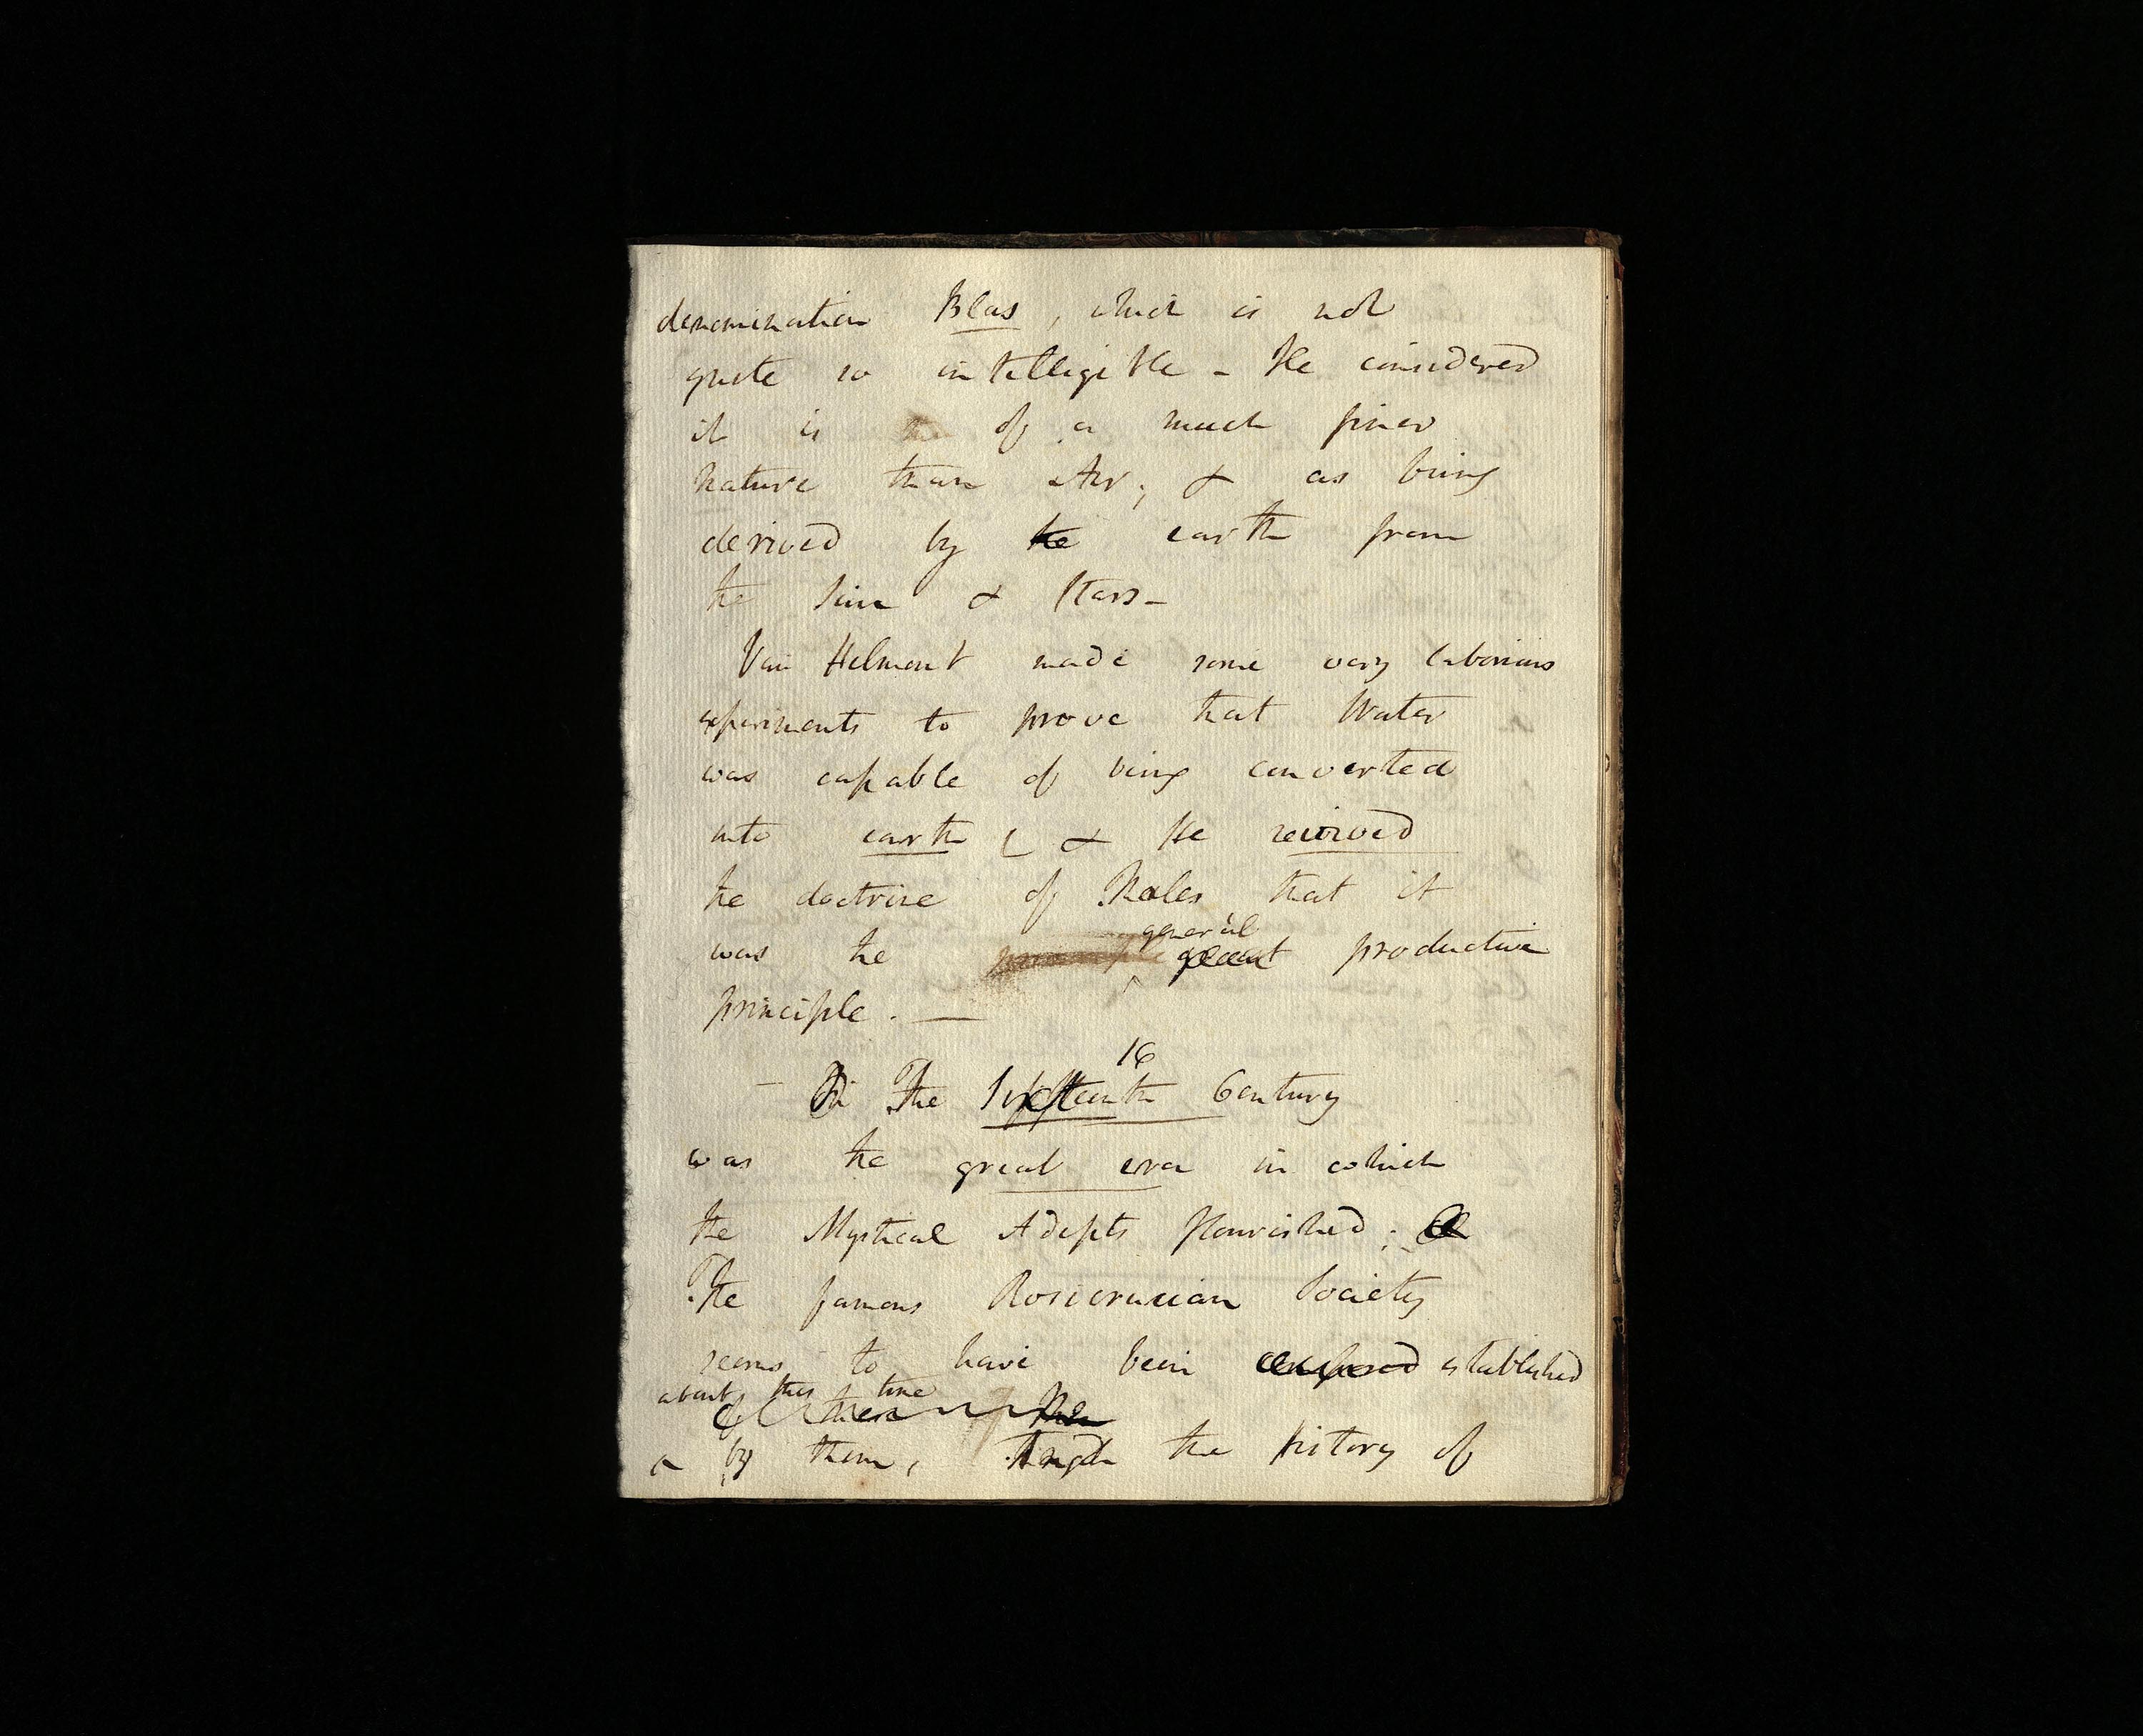 denomination Blas, which is not
quite so intelligible - He considered
it is of a much finer
nature than Air; & as being
derived by the earth from
the Sun & Stars-
Van Helmont made some very laborious
experiments to prove that Water
was capable of being converted
into earth ( & He revived
the doctrine of Thales that it
general
was the principle great productive
principle. —
16
- In The Sixteenth Century
was the great era in which
the Mystical Adepts flourished;
The famous Rosicrucian Society
seems to have been composed established
about this time
of them
by them, Tho' the history of